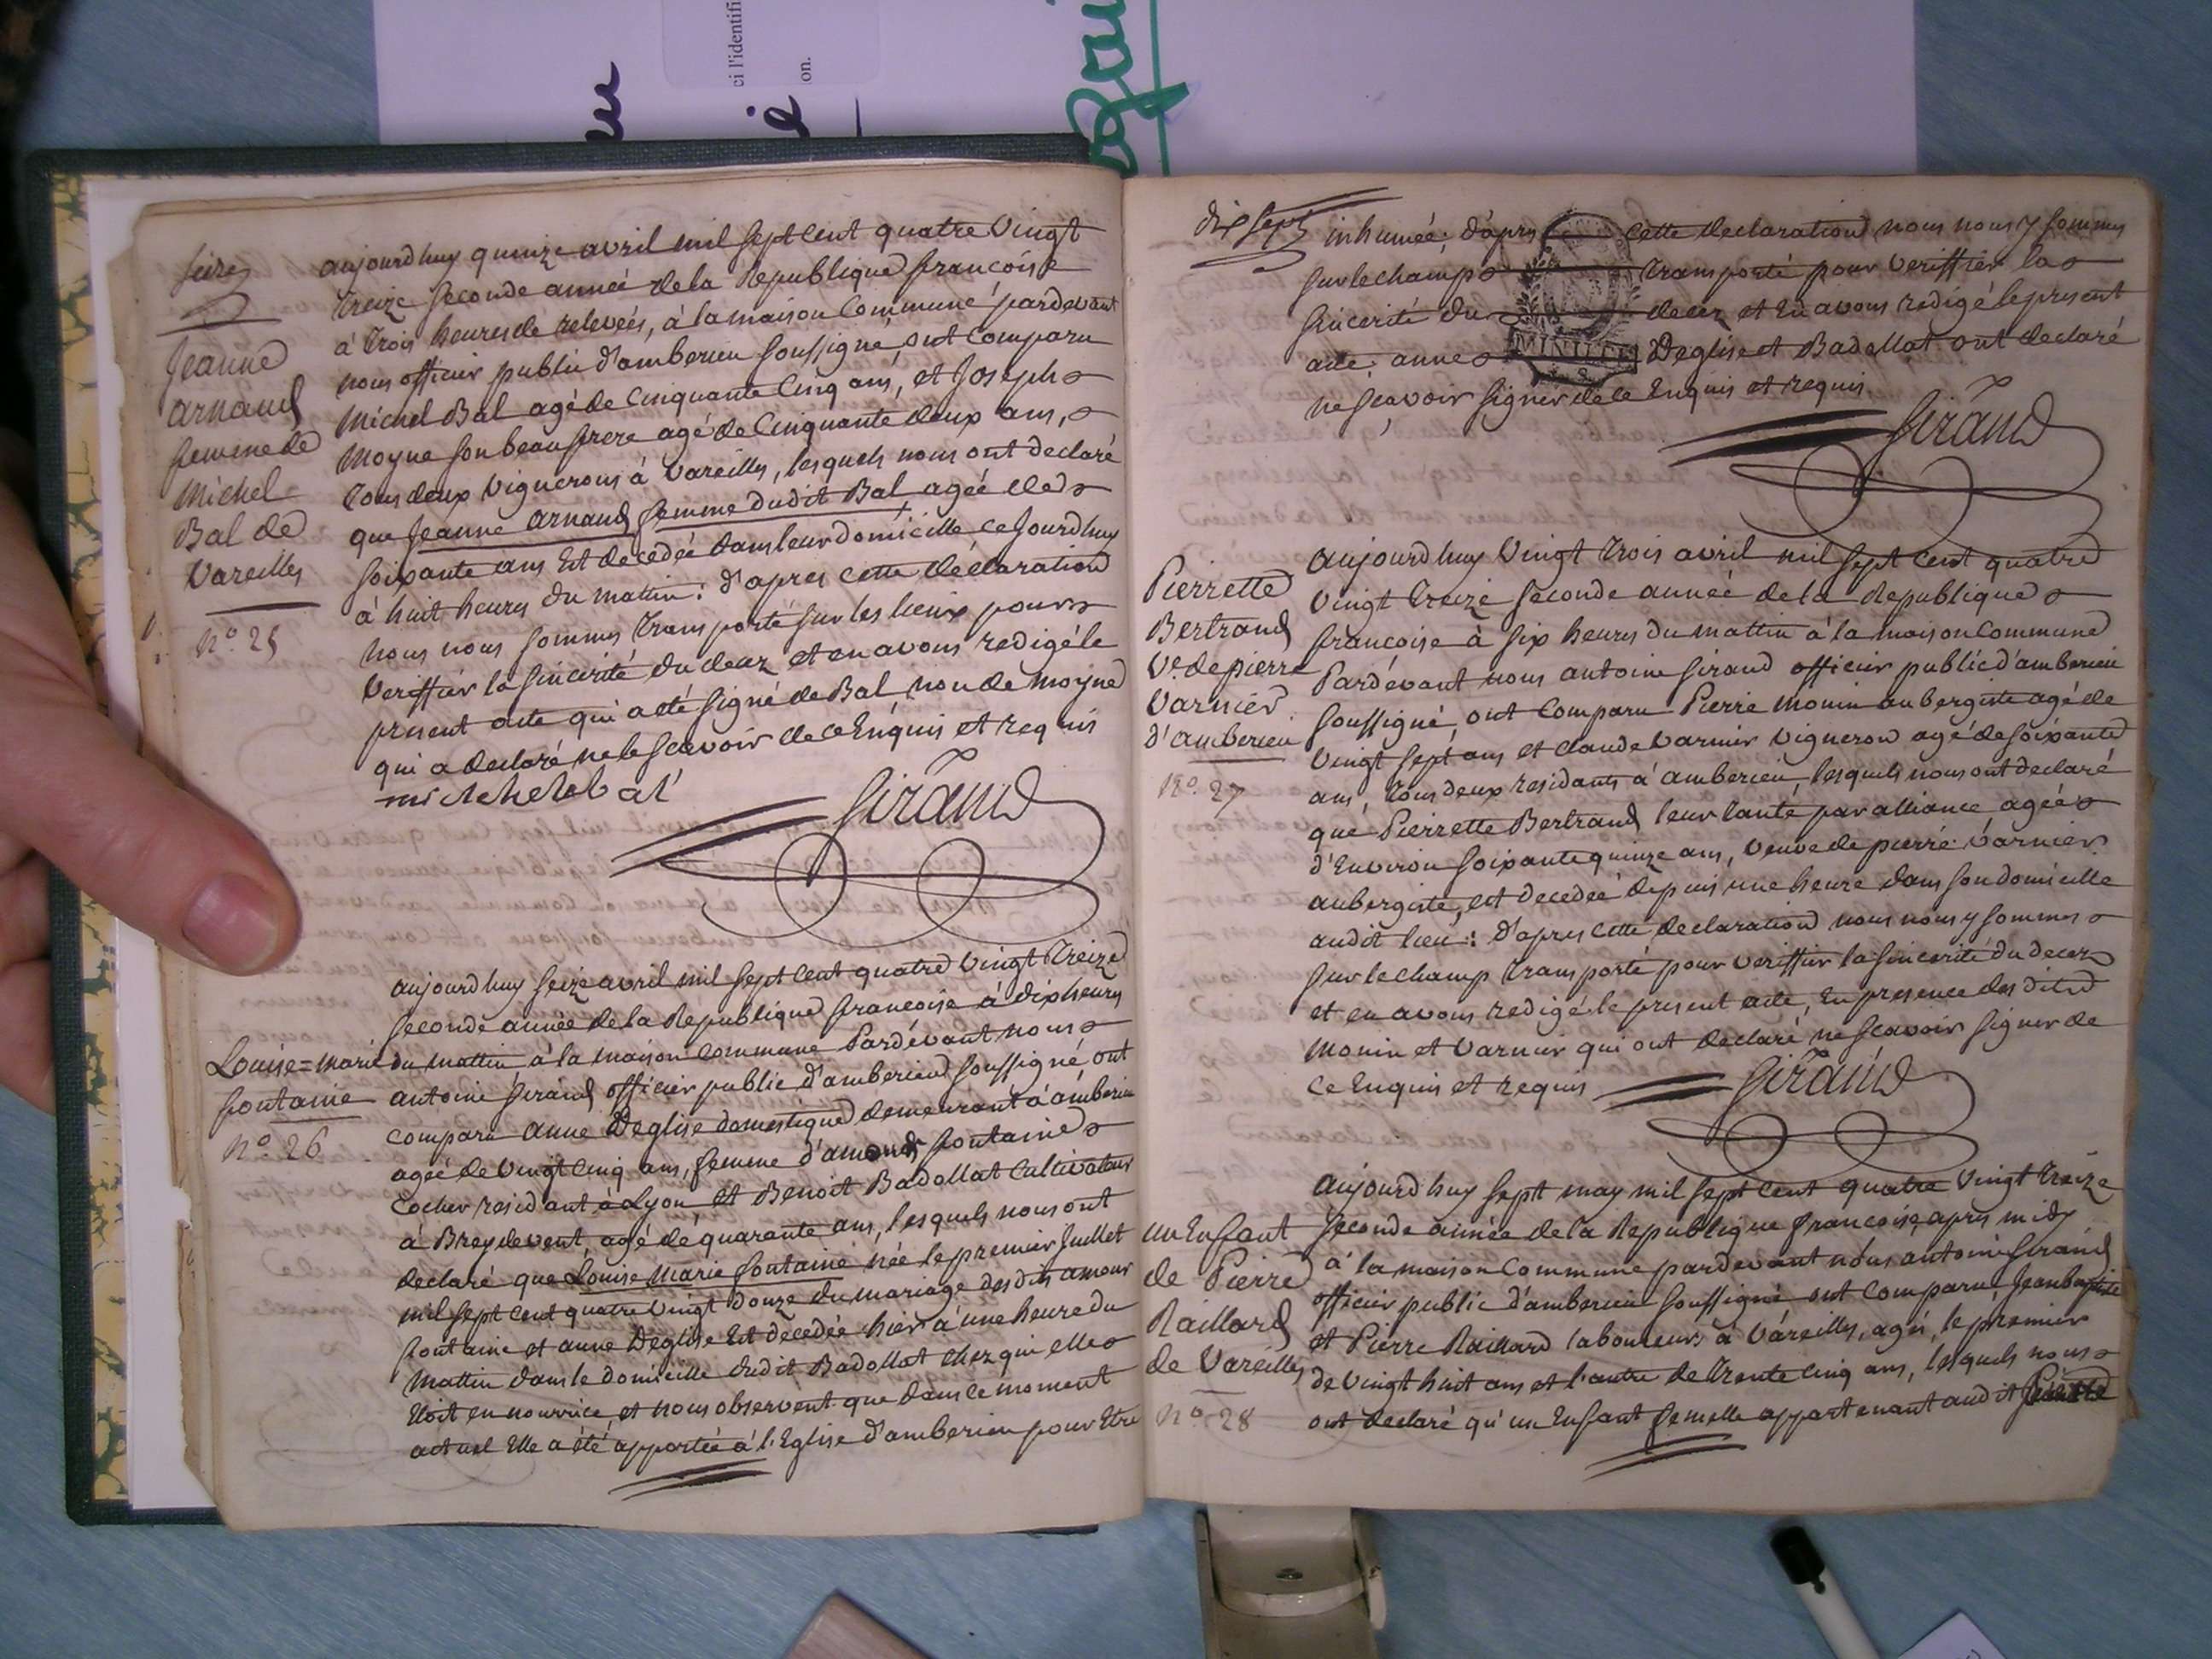 seize
Jeanne
arnaud
femme de
Michel
Bal de
Vareilles
n.o 25
aujourdhuy quinze avril mil sept cent quatre vingt
treize seconde année de la Republique françoise
à trois heures de relevées, à la maison Commune pardevant
nous officier public d'amberieu soussigné, ont comparu
Michel Bal agé de Cinquante Cinq ans, et Joseph
Moyne son beaufrere agé de Cinquante deux ans,
tous deux Vignerons à Vareilles, lesquels nous ont declaré
que Jeanne arnaud femme dudit Bal, agée de
soixante ans Est decedée dans leur domicille ce jourdhuy
à huit heures du matin: d'apres cette déclaration
nous nous sommes transporté sur les lieux pour
veriffier la sincerité du decez et en avons redigé le
present acte qui a été signé de Bal, non de Moyne
qui a declaré ne le scavoir de ce Enquis et requis
michel bal
Giraud
Louise=Marie
fontaine
n.o 26
aujourdhuy seize avril mil sept cent quatre vingt Treize
seconde année de la Republique francoise à dix heures
du mattin à la maison Commune Pardévant nous
antoine Giraud officier public d'amberieu soussigné, ont
comparu anne Deglise domestique demeurant à amberieu
agée de vingt cinq ans, femme d'amour fontaine
Cocher résidant à Lyon et Benoit Badollat Cultivateur
à Breydevent, agé de quarante ans, lesquels nous ont
declaré que Louise Marie fontaine née le premier Juillet
mil sept cent quatre vingt douze du mariage desdits amour
fontaine et anne Deglise Est decedée hier à une heure du
mattin dans le domicille dudit Badollat chez qui elle
Etoit en nourrice, et nous observent que dans ce moment
actuel Elle a été apportée à l'Eglise d'amberieu pour Etre
dix sept
inhumée; d'apres cette declaration nous nous y sommes
sur le champ transporté pour veriffier la
sincerité du decez et En avons redigé le present
acte, anne Deglise et Badollat ont declaré
ne sçavoir signer de ce Enquis et requis
MINUTE
Giraud
Pierrette
Bertrand
Ve. de pierre
Varnier
d'amberieu
N.o 27
aujourdhuy Vingt Trois avril mil sept cent quatre
vingt Treize seconde année de la Republique
françoise à six heures du mattin à la maison Commune
Pardévant nous antoine Giraud officier public d'amberieu
soussigné, ont comparu Pierre Monin aubergiste agé de
vingt sept ans et claude Varnier vigneron agé de soixante
ans, tous deux residants à amberieu, lesquels nous ont declaré
que Pierrette Bertrand leur tante par alliance agée
d'Environ soixante quinze ans, veuve de pierre Varnier
aubergiste, est decedée depuis une heure dans son domicille
audit lieu: d'apres cette declaration nous nous y sommes
sur le champ transporté pour veriffier la sincerité du decez
et en avons redigé le present acte, En presence des dits
Monin et Varnier qui ont declaré ne scavoir signer de
ce Enquis et requis
Giraud
un Enfant
de Pierre
Raillard
de Vareilles
n.o 28
aujourdhuy sept may mil sept cent quatre vingt treize
seconde année de la Republique françoise, apres midy
à la maison Commune pardevant nous antoine Giraud
officier public d'amberieu soussigné ont comparu, Jean baptiste
et Pierre Raillard laboureurs à Vareilles, agés, le premier
de vingt huit ans et l'autre de Trente Cinq ans, lesquels nous
ont declaré qu'un Enfant femelle appartenant audit
ci l'identifi
on.